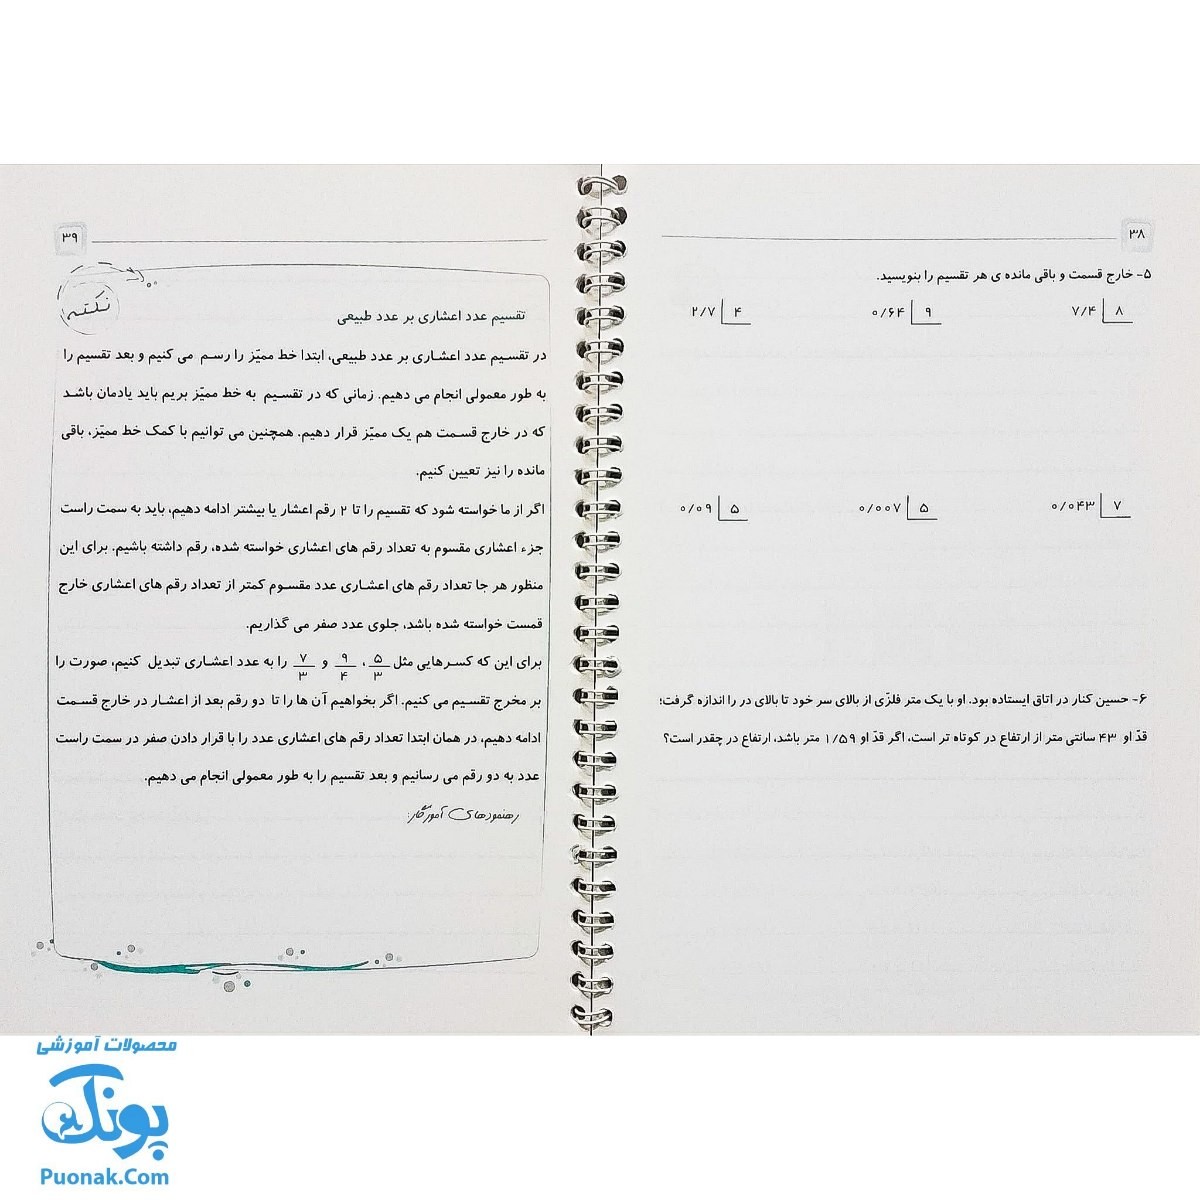 ۳۸
۵- خارج قسمت و باقی مانده ی هر تقسیم را بنویسید.
۷/۴ ۸
۰/۶۴ ۹
۲/۷ ۴
۰/۰۴۳ ۷
۰/۰۰۷ ۵
۰/۰۹ ۵
۶- حسین کنار در اتاق ایستاده بود. او با یک متر فلزّی از بالای سر خود تا بالای در را اندازه گرفت؛
قدّ او ۴۳ سانتی متر از ارتفاع در کوتاه تر است، اگر قدّ او ۱/۵۹ متر باشد، ارتفاع در چقدر است؟
۳۹
نکته
تقسیم عدد اعشاری بر عدد طبیعی
در تقسیم عدد اعشاری بر عدد طبیعی، ابتدا خط ممیّز را رسم می کنیم و بعد تقسیم را
به طور معمولی انجام می دهیم. زمانی که در تقسیم به خط ممیّز بریم باید یادمان باشد
که در خارج قسمت هم یک ممیّز قرار دهیم. همچنین می توانیم با کمک خط ممیّز، باقی
مانده را نیز تعیین کنیم.
اگر از ما خواسته شود که تقسیم را تا ۲ رقم اعشار یا بیشتر ادامه دهیم، باید به سمت راست
جزء اعشاری مقسوم به تعداد رقم های اعشاری خواسته شده، رقم داشته باشیم. برای این
منظور هر جا تعداد رقم های اعشاری عدد مقسوم کمتر از تعداد رقم های اعشاری خارج
قمست خواسته شده باشد، جلوی عدد صفر می گذاریم.
برای این که کسرهایی مثل ۵/۳ ، ۹/۴ و ۷/۳ را به عدد اعشاری تبدیل کنیم، صورت را
بر مخرج تقسیم می کنیم. اگر بخواهیم آن ها را تا دو رقم بعد از اعشار در خارج قسمت
ادامه دهیم، در همان ابتدا تعداد رقم های اعشاری عدد را با قرار دادن صفر در سمت راست
عدد به دو رقم می رسانیم و بعد تقسیم را به طور معمولی انجام می دهیم.
رهنمودهای آموزگار:
محصولات آموزشی
پونک
Puonak.Com